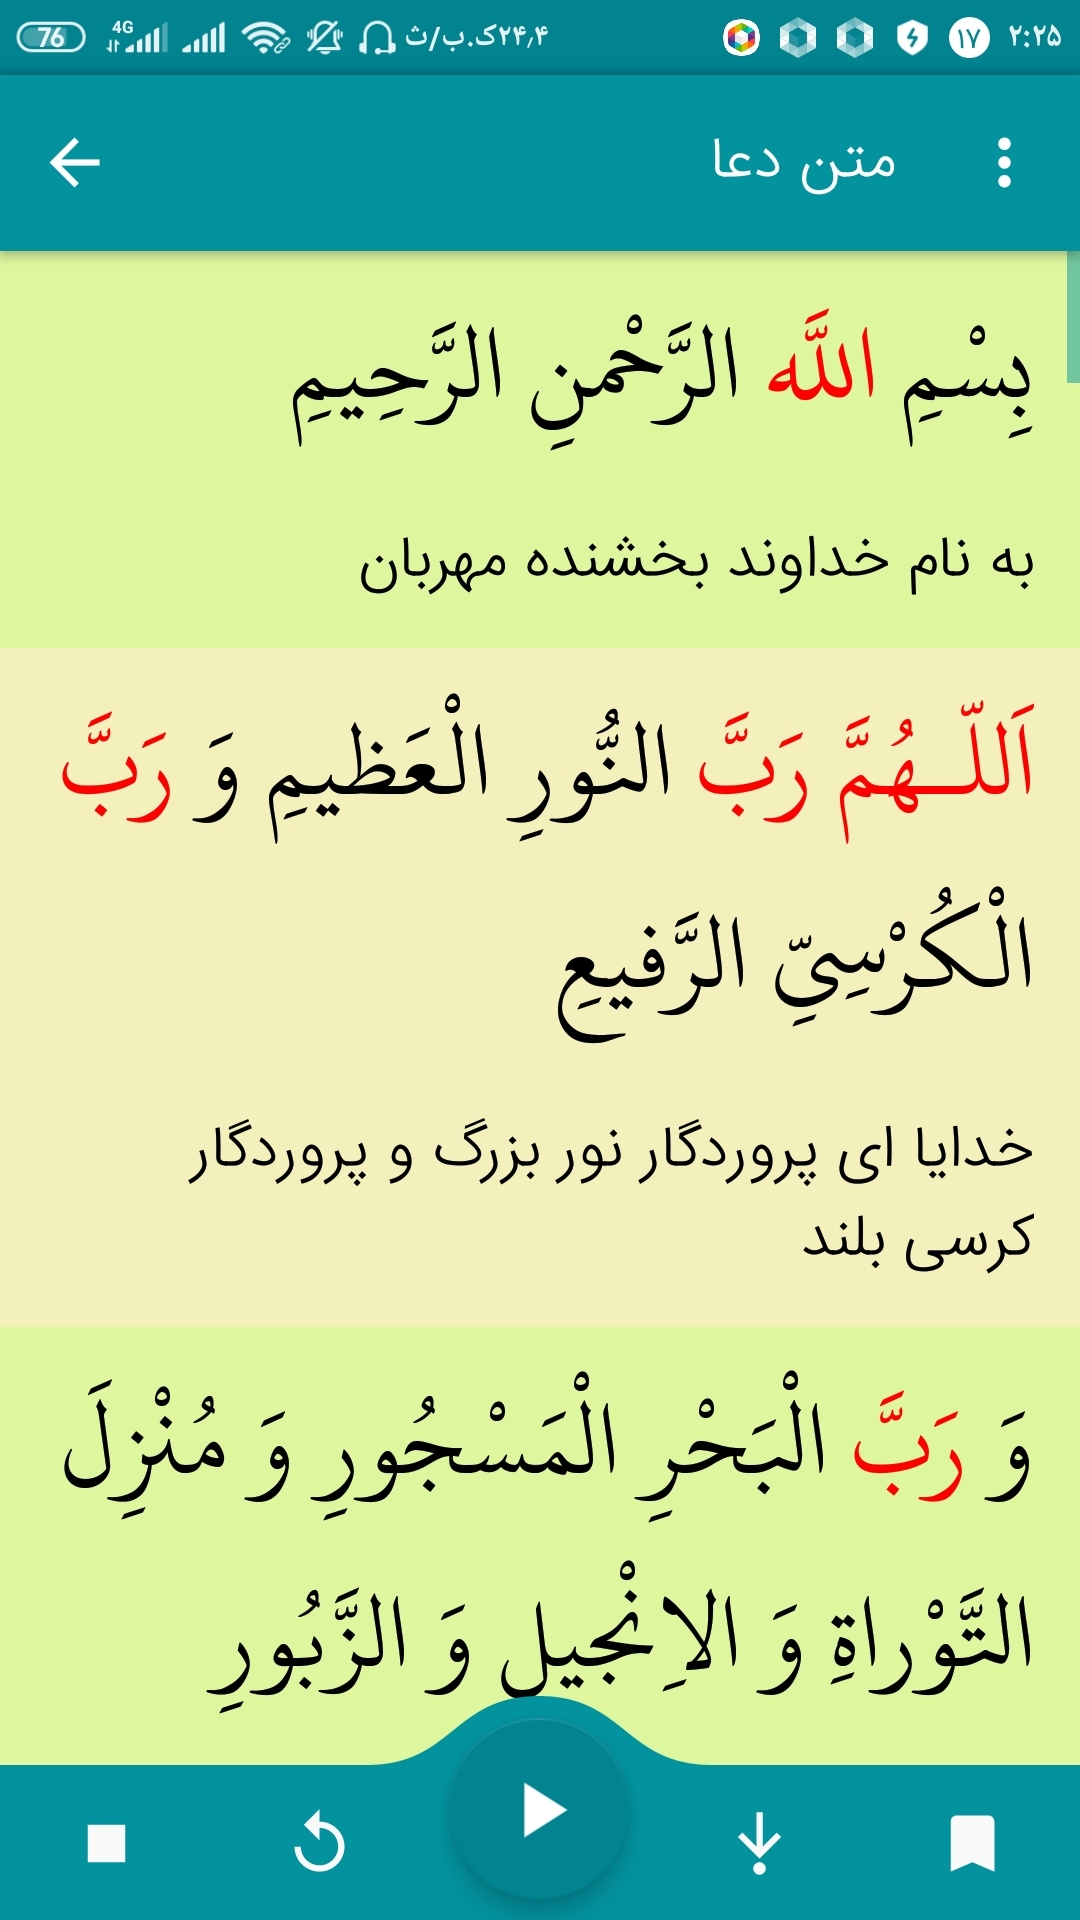 76 4G ۲۴٫۴ک.ب/ث ۱۷ ۲:۲۵
متن دعا
بِسْمِ اللَّه الرَّحْمنِ الرَّحِیمِ
به نام خداوند بخشنده مهربان
اَللّـهُمَّ رَبَّ النُّورِ الْعَظیمِ وَ رَبَّ
الْکُرْسِیِّ الرَّفیعِ
خدایا ای پروردگار نور بزرگ و پروردگار
کرسی بلند
وَ رَبَّ الْبَحْرِ الْمَسْجُورِ وَ مُنْزِلَ
التَّوْراةِ وَ الاِنْجیلِ وَ الزَّبُورِ